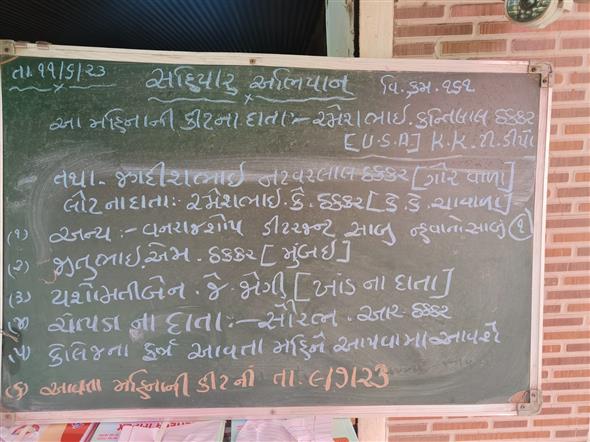 તા. ૧૧/૬/૨૩ સહિયારુ અભિયાન વિ. ક્રમ. ૧૬૧
આ મહિનાની કીટના દાતા:- રમેશભાઈ. કાન્તિલાલ ઠક્કર
[U.S.A] K.K. ટી. ડીપો
તથા. જગદીશભાઈ નટવરલાલ ઠક્કર [ગોર વાળા]
લોટ ના દાતા:- રમેશભાઈ. કે. ઠક્કર [કે. કે. ચાવાળા]
(૧) અન્ય:- વનરાજશોપ ડીટરજન્ટ સાબુ ન્હાવાનો સાબુ (૧)
(૨) જીતુભાઈ. એમ. ઠક્કર [મુંબઈ]
(૩) યશોમતીબેન. જે. જોગી [ખાંડ ના દાતા]
(૪) ચોપડા ના દાતા:- સૌરત્ન. આર. ઠક્કર
(૫) કોલેજના ફોર્મ આવતા મહિને આપવામા આવશે
(૬) આવતા મહિનાની કીટની તા. ૯/૭/૨૩